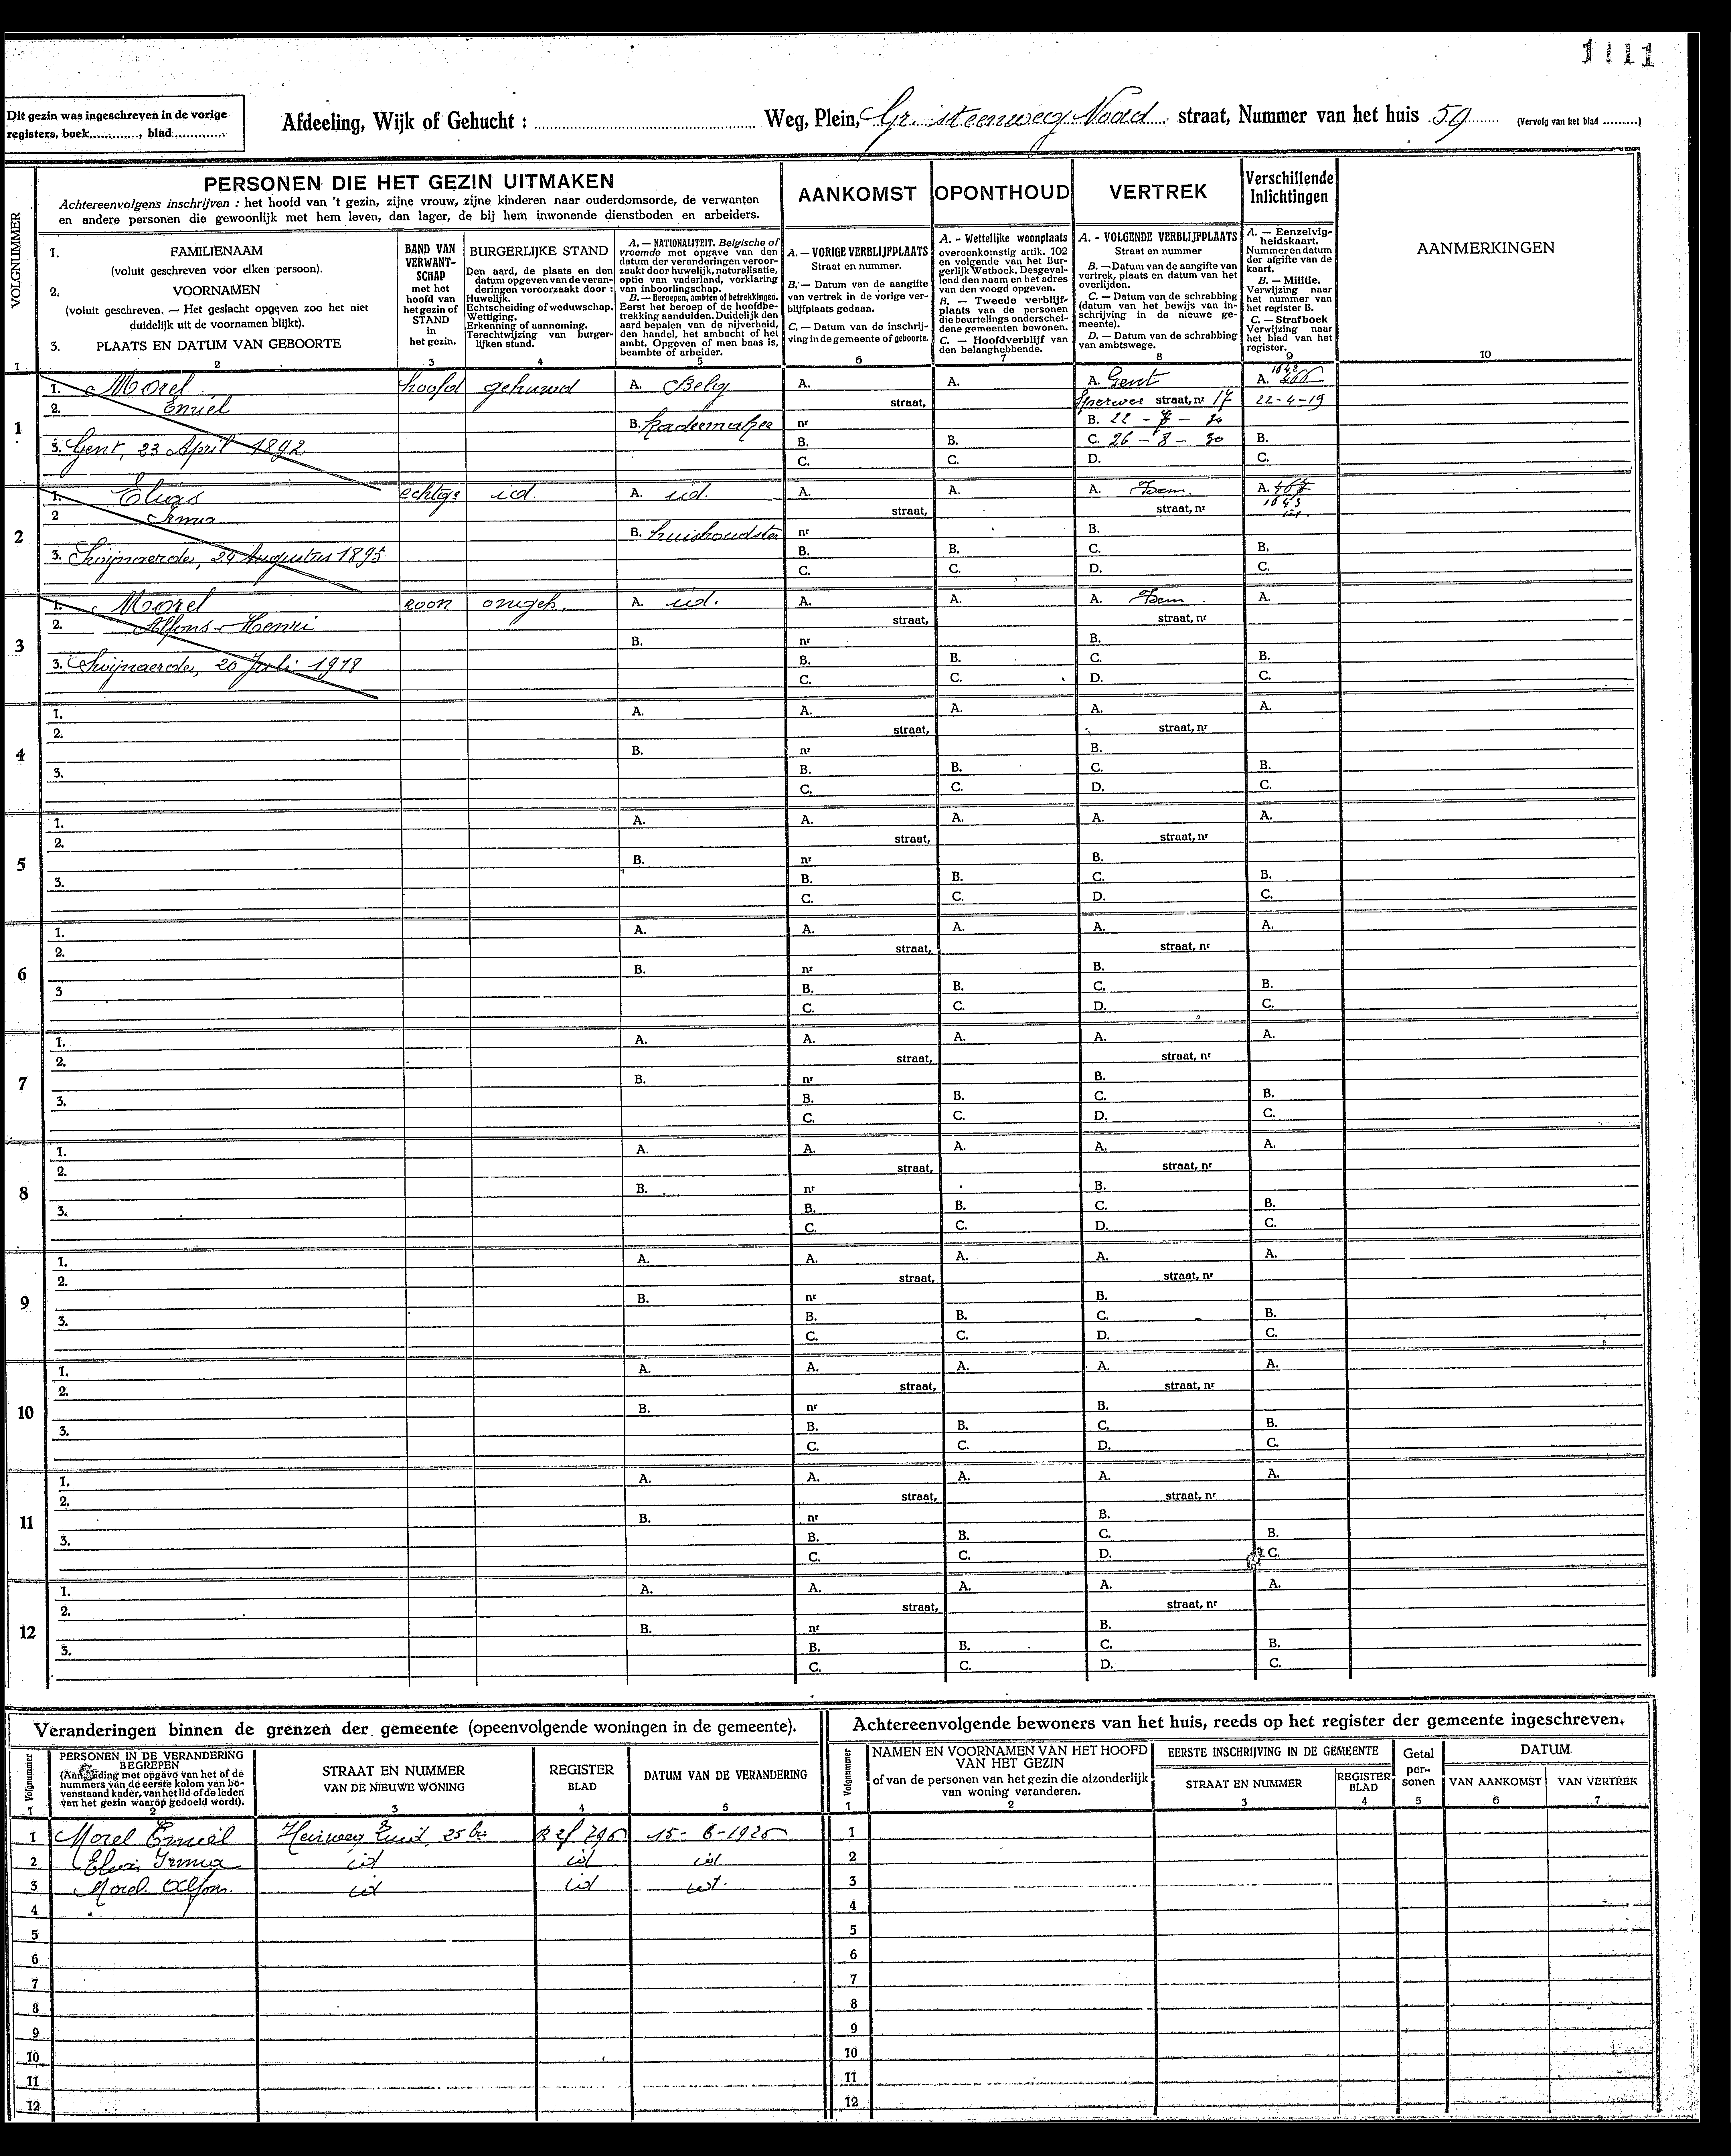 1111
Dit gezin was ingeschreven in de vorige
registers, boek............, blad..............
Afdeeling, Wijk of Gehucht : .......... Weg, Plein, Gr. steenweg Noord straat, Nummer van het huis 59 (Vervolg van het blad .........)
VOLGNUMMER
PERSONEN DIE HET GEZIN UITMAKEN
Achtereenvolgens inschrijven : het hoofd van 't gezin, zijne vrouw, zijne kinderen naar ouderdomsorde, de verwanten
en andere personen die gewoonlijk met hem leven, dan lager, de bij hem inwonende dienstboden en arbeiders.
AANKOMST
OPONTHOUD
VERTREK
Verschillende
Inlichtingen
AANMERKINGEN
1. FAMILIENAAM
(voluit geschreven voor elken persoon).
2. VOORNAMEN
(voluit geschreven. — Het geslacht opgeven zoo het niet
duidelijk uit de voornamen blijkt).
3. PLAATS EN DATUM VAN GEBOORTE
BAND VAN
VERWANT-
SCHAP
met het
hoofd van
het gezin of
STAND
in
het gezin.
BURGERLIJKE STAND
Den aard, de plaats en den
datum opgeven van de veran-
deringen veroorzaakt door :
Huwelijk.
Echtscheiding of weduwschap.
Wettiging.
Erkenning of aanneming.
Terechtwijzing van burger-
lijken stand.
A. — NATIONALITEIT. Belgische of
vreemde met opgave van den
datum der veranderingen veroor-
zaakt door huwelijk, naturalisatie,
optie van vaderland, verklaring
van inboorlingschap.
B. — Beroepen, ambten of betrekkingen.
Eerst het beroep of de hoofdbe-
trekking aanduiden. Duidelijk den
aard bepalen van de nijverheid,
den handel, het ambacht of het
ambt. Opgeven of men baas is,
beambte of arbeider.
A. — VORIGE VERBLIJFPLAATS
Straat en nummer.
B. — Datum van de aangifte
van vertrek in de vorige ver-
blijfplaats gedaan.
C. — Datum van de inschrij-
ving in de gemeente of geboorte.
A. - Wettelijke woonplaats
overeenkomstig artik. 102
en volgende van het Bur-
gerlijk Wetboek. Desgeval-
lend den naam en het adres
van den voogd opgeven.
B. — Tweede verblijf-
plaats van de personen
die beurtelings onderschei-
dene gemeenten bewonen.
C. — Hoofdverblijf van
den belanghebbende.
A. - VOLGENDE VERBLIJFPLAATS
Straat en nummer
B. — Datum van de aangifte van
vertrek, plaats en datum van het
overlijden.
C. — Datum van de schrabbing
(datum van het bewijs van in-
schrijving in de nieuwe ge-
meente).
D. — Datum van de schrabbing
van ambtswege.
A. — Eenzelvig-
heidskaart.
Nummer en datum
der afgifte van de
kaart.
B. — Militie.
Verwijzing naar
het nummer van
het register B.
C. — Strafboek
Verwijzing naar
het blad van het
register.
1 2 3 4 5 6 7 8 9 10
1
1. Morel hoofd gehuwd A. Belg A. A. A. Gent 1642 A.
2. Emiel straat, straat, nr 17 22-4-19
B. nr B. 22 - 7 - 30
3. Gent, 23 April 1892 B. B. C. 26 - 8 - 30 B.
C. C. D. C.
2
1. Elias echtge id. A. id. A. A. A. Idem A. 467
2 Irma straat, straat, nr 1643
B. huishoudster nr B.
3. Swijnaerde, 24 Augustus 1895 B. B. C. B.
C. C. D. C.
3
1. Morel zoon ongeh. A. id. A. A. A. Idem A.
2. Alfons-Henri straat, straat, nr
B. nr B.
3. Swijnaerde, 20 Juli 1918 B. B. C. B.
C. C. D. C.
4
1. A. A. A. A. A.
2. straat, straat, nr
B. nr B.
3. B. B. C. B.
C. C. D. C.
5
1. A. A. A. A. A.
2. straat, straat, nr
B. nr B.
3. B. B. C. B.
C. C. D. C.
6
1. A. A. A. A. A.
2. straat, straat, nr
B. nr B.
3 B. B. C. B.
C. C. D. C.
7
1. A. A. A. A. A.
2. straat, straat, nr
B. nr B.
3. B. B. C. B.
C. C. D. C.
8
1. A. A. A. A. A.
2. straat, straat, nr
B. nr B.
3. B. B. C. B.
C. C. D. C.
9
1. A. A. A. A. A.
2. straat, straat, nr
B. nr B.
3. B. B. C. B.
C. C. D. C.
10
1. A. A. A. A. A.
2. straat, straat, nr
B. nr B.
3. B. B. C. B.
C. C. D. C.
11
1. A. A. A. A. A.
2. straat, straat, nr
B. nr B.
3. B. B. C. B.
C. C. D. C.
12
1. A. A. A. A. A.
2. straat, straat, nr
B. nr B.
3. B. B. C. B.
C. C. D. C.
Veranderingen binnen de grenzen der gemeente (opeenvolgende woningen in de gemeente).
Volgnummer
PERSONEN IN DE VERANDERING
BEGREPEN
(Aanduiding met opgave van het of de
nummers van de eerste kolom van bo-
venstaand kader, van het lid of de leden
van het gezin waarop gedoeld wordt).
STRAAT EN NUMMER
VAN DE NIEUWE WONING
REGISTER
BLAD
DATUM VAN DE VERANDERING
1 2 3 4 5
1 Morel Emiel Heirweg Zuid, 25 bis 15-6-1925
2 Elias Irma id id id
3 Morel Alfons. id id id.
4
5
6
7
8
9
10
11
12
Achtereenvolgende bewoners van het huis, reeds op het register der gemeente ingeschreven.
Volgnummer
NAMEN EN VOORNAMEN VAN HET HOOFD
VAN HET GEZIN
of van de personen van het gezin die afzonderlijk
van woning veranderen.
EERSTE INSCHRIJVING IN DE GEMEENTE
STRAAT EN NUMMER
REGISTER
BLAD
Getal
per-
sonen
DATUM
VAN AANKOMST
VAN VERTREK
1 2 3 4 5 6 7
1
2
3
4
5
6
7
8
9
10
11
12